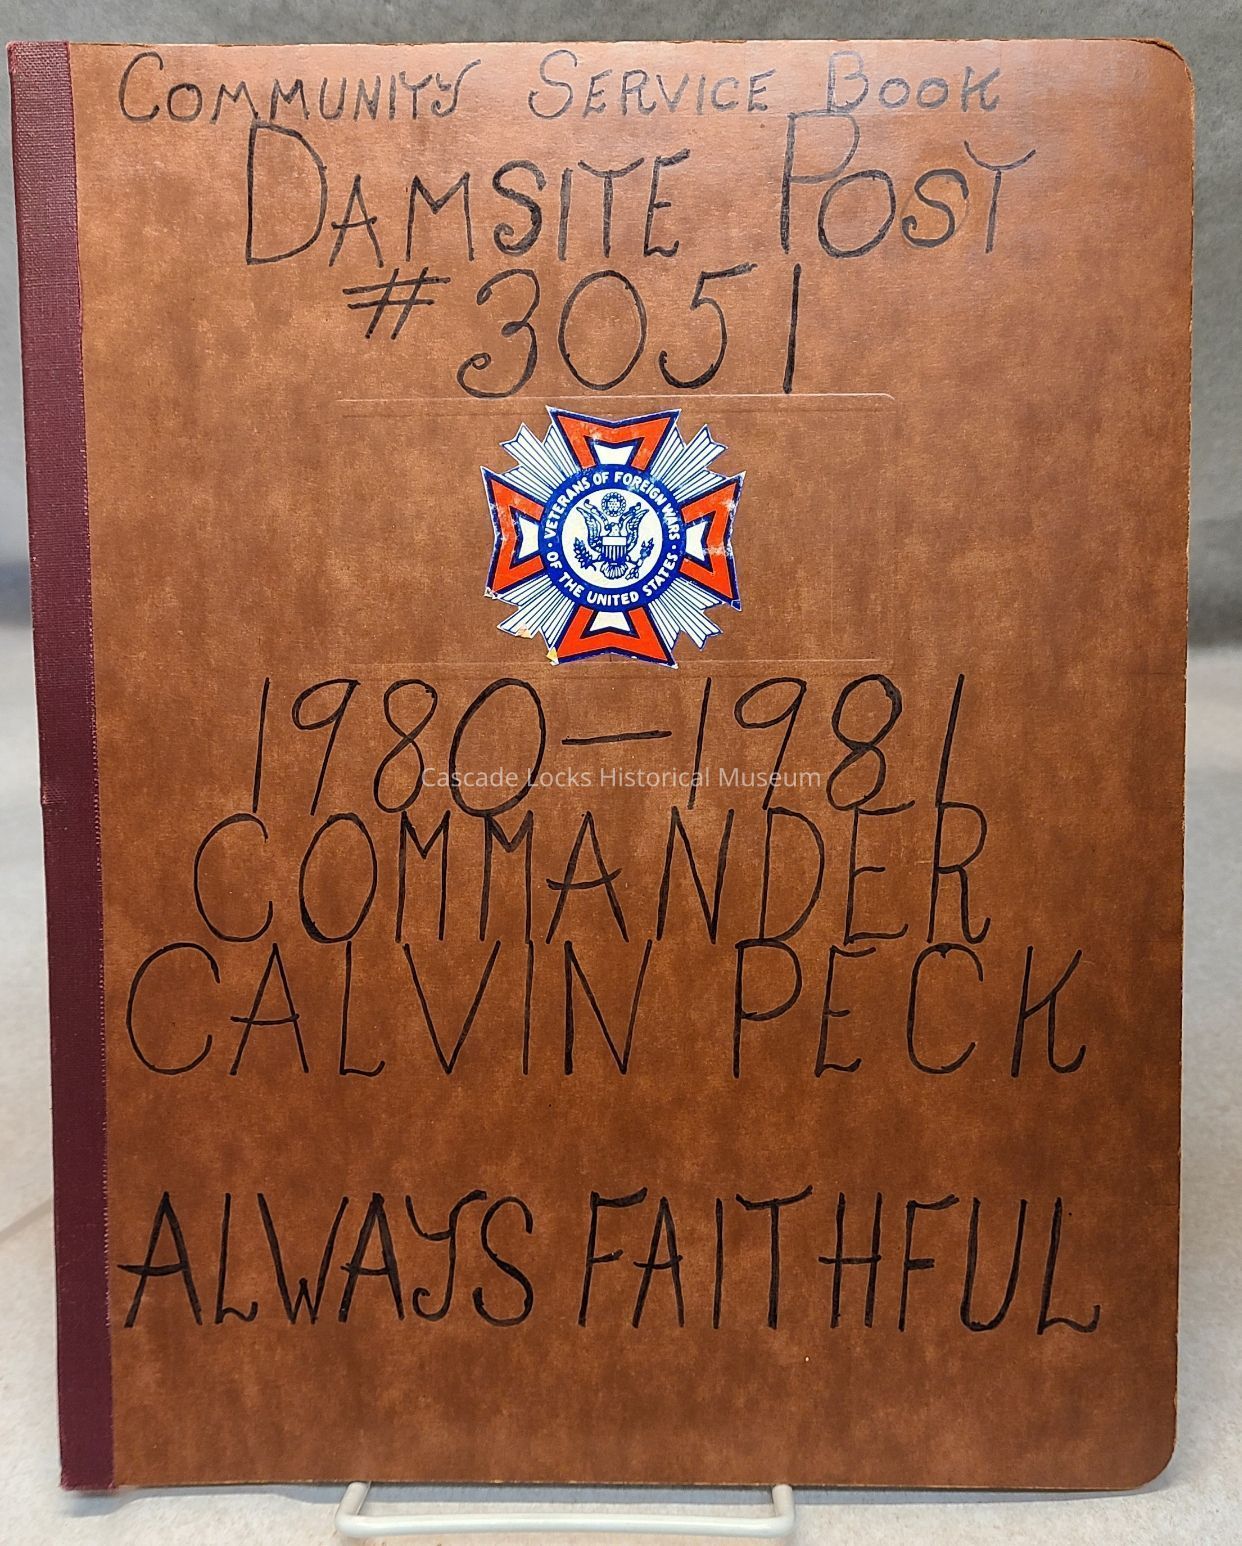 Community Service Book
Damsite Post
#3051
VETERANS OF FOREIGN WARS
OF THE UNITED STATES
1980-1981
Cascade Locks Historical Museum
COMMANDER
CALVIN PECK
ALWAYS FAITHFUL